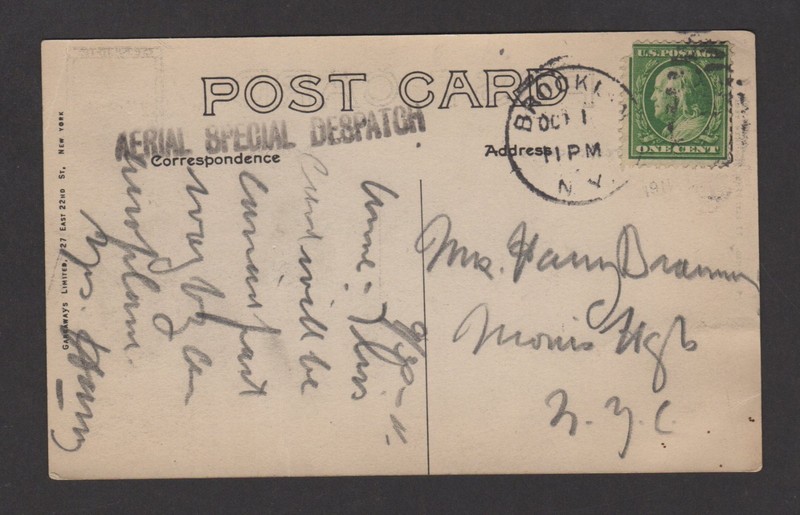 POST CARD
AERIAL SPECIAL DESPATCH
Correspondence
Address
BROOKLYN
OCT 1
11 PM
N.Y.
U.S. POSTAGE
ONE CENT
Anne: This
Card will be
carried part
way by an
aeroplane.
Yrs. Harry
Mrs. Harry
Morris Hgts
N.Y.C.
GARRAWAYS LIMITED, 27 EAST 22ND ST, NEW YORK